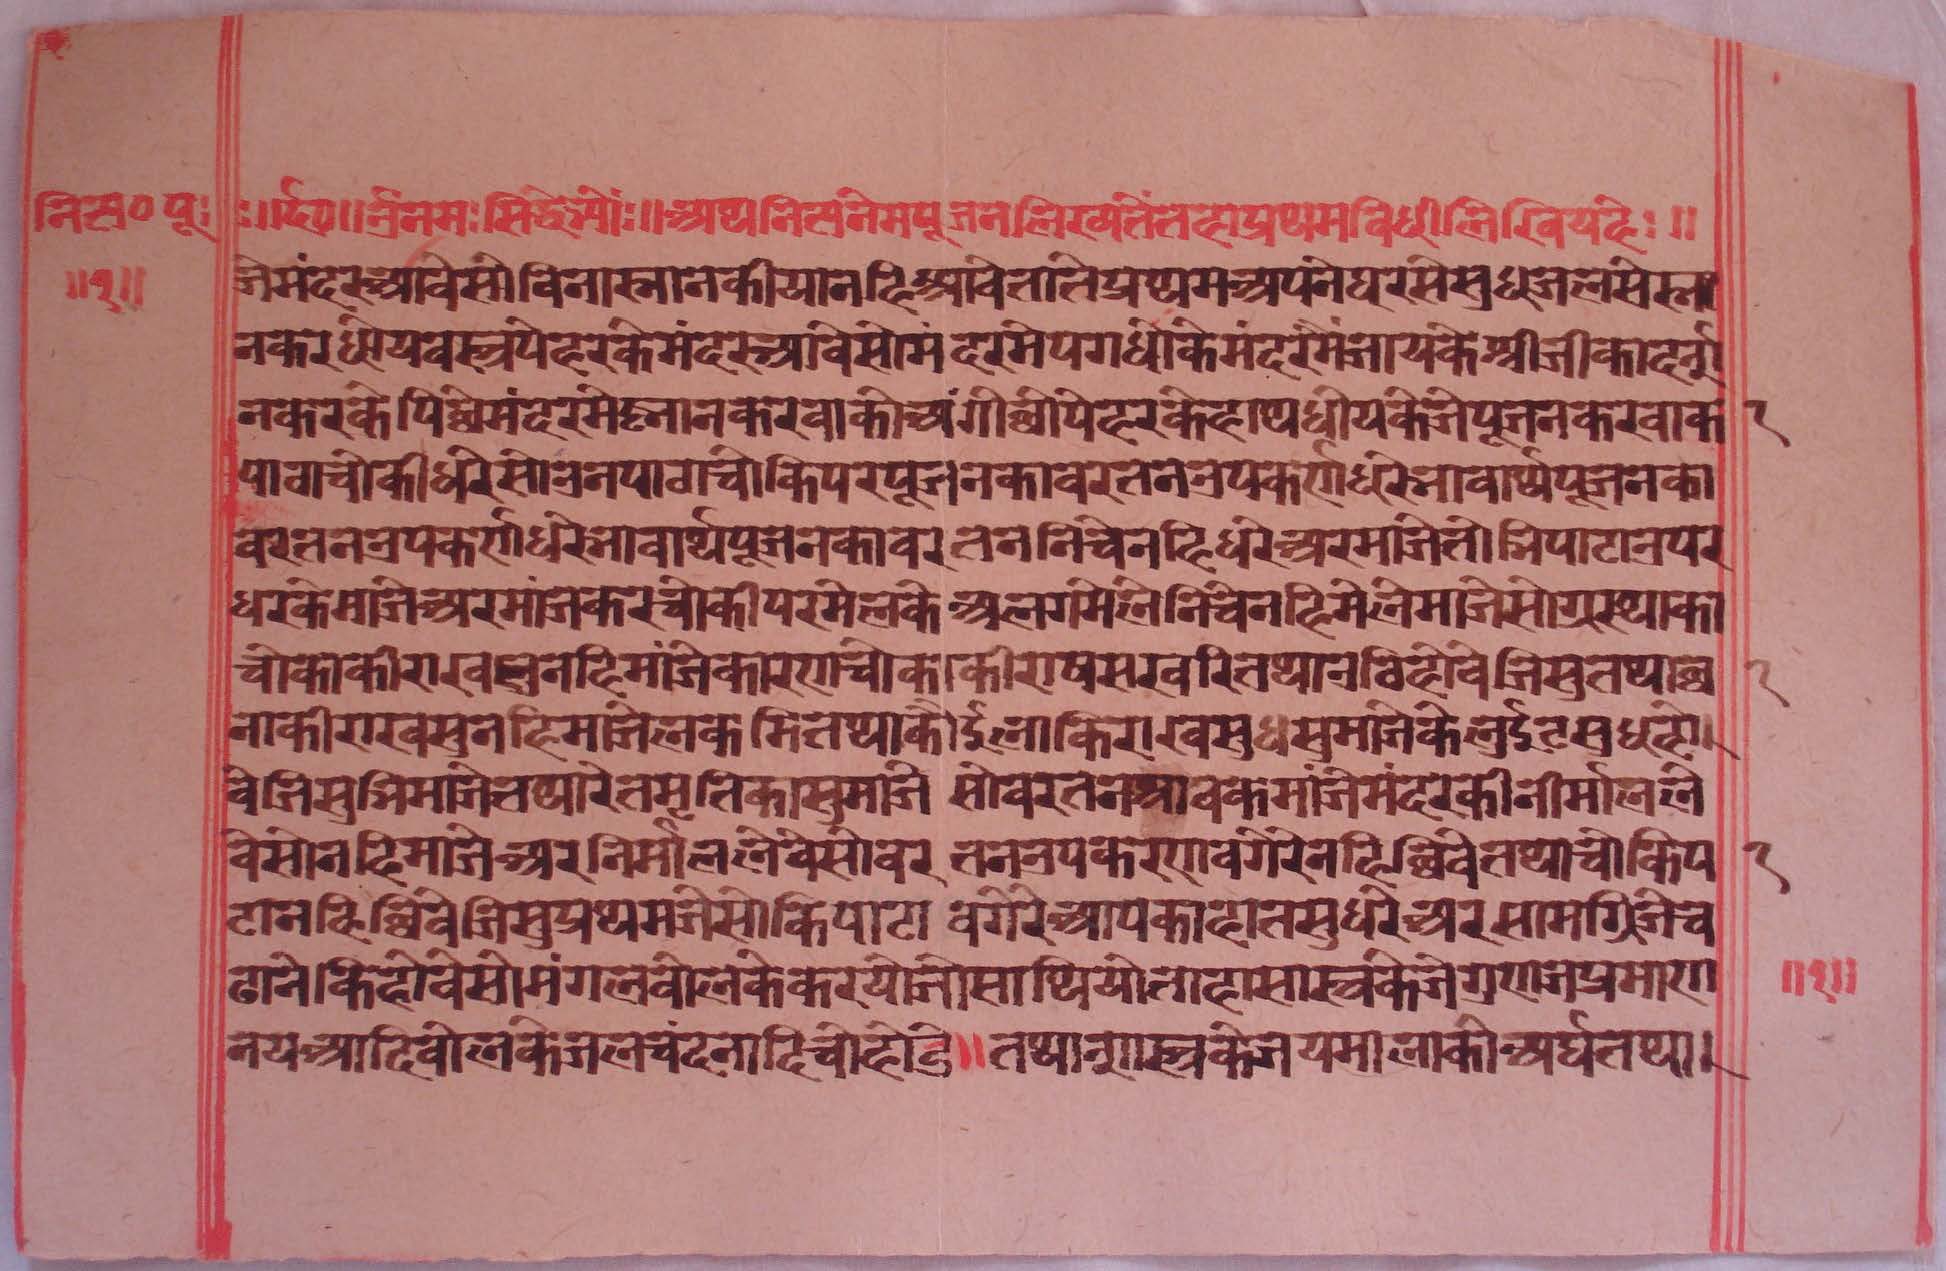 नित्य० पू॰
॥१॥
ः॥र्द०॥ उँनमः सिद्धेभ्योंः॥ अथनित्यनेमपूजनलिख्यतेंतहाप्रथमविधीलिखियहेः॥
जेमंदरआवेसोविनास्नानकीयानहिआवेतातेप्रथमअपनेघरसेसुधजलसेस्ना
नकरधोयवस्त्रपेहरकेमंदरआवेसोमंदरमेपगधोकेमंदरमेंजायकेश्रीजीकादर्श
नकरकेपिछेमंदरमेस्नानकरवाकोअंगोछोपेहरकेहाथधोयकेजेपूजनकरवाक
पावाचोकीधरेसोउनपावाचोकिपरपूजनकावरतनउपकर्णधरेभावार्थपूजनका
वरतनउपकर्णधरेभावार्थपूजनकावरतननिचेनहिधरेअरमाजेतोभिपाटाउपर
धरकेमाजेअरमांजेकरचोकीपरमेलकेअलगमेलेनिचेनहिमेलेमाजेसोग्रस्थाका
चोकाकीराखसुनहिमांजेकारणचोकाकीराषसखरितथाउठिहोवेजिसुतथाछा
नाकीराखसुनहिमाजेलकमितथाकोईलाकिराखसुधसुमाजेकेलुईटसुधहो।
वेजिसुभिमाजेतथारेतमृतिकासुमाजेसोवरतनश्रावकमांजेमंदरकोनीर्माललें
वेसोनहिमाजेअरनिर्मालिलेवेसोवरतनउपकरणवगेरेनहिछिवेतथाचोकिप
टानहिछिवेजिसुप्रथमजेसोकिपाटावगेरेआपकाहातसुधरेअरसामग्रिजेच
ढाने।किहोवेसोमंगलवोलकेकरयोजोसाथियोताहासास्त्रकेजेगुणजप्रमाण
नयआदिवोलकेजलचंदनादिचोहोडे॥तथाशास्त्रकेजयमालाकोअर्घतथा।
॥१॥